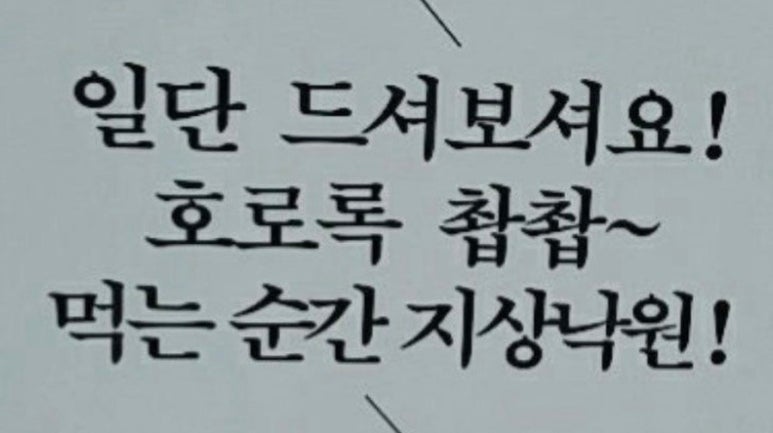 일단 드셔보셔요!
호로록 촵촵~
먹는 순간 지상낙원!